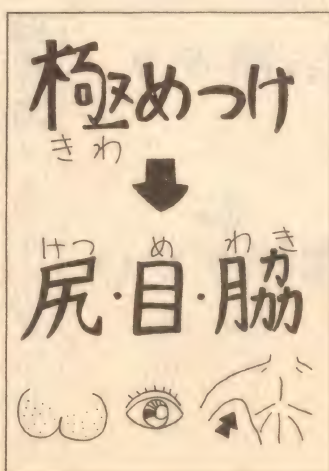 極めつけ
きわ
けつ め わき
尻・目・脇